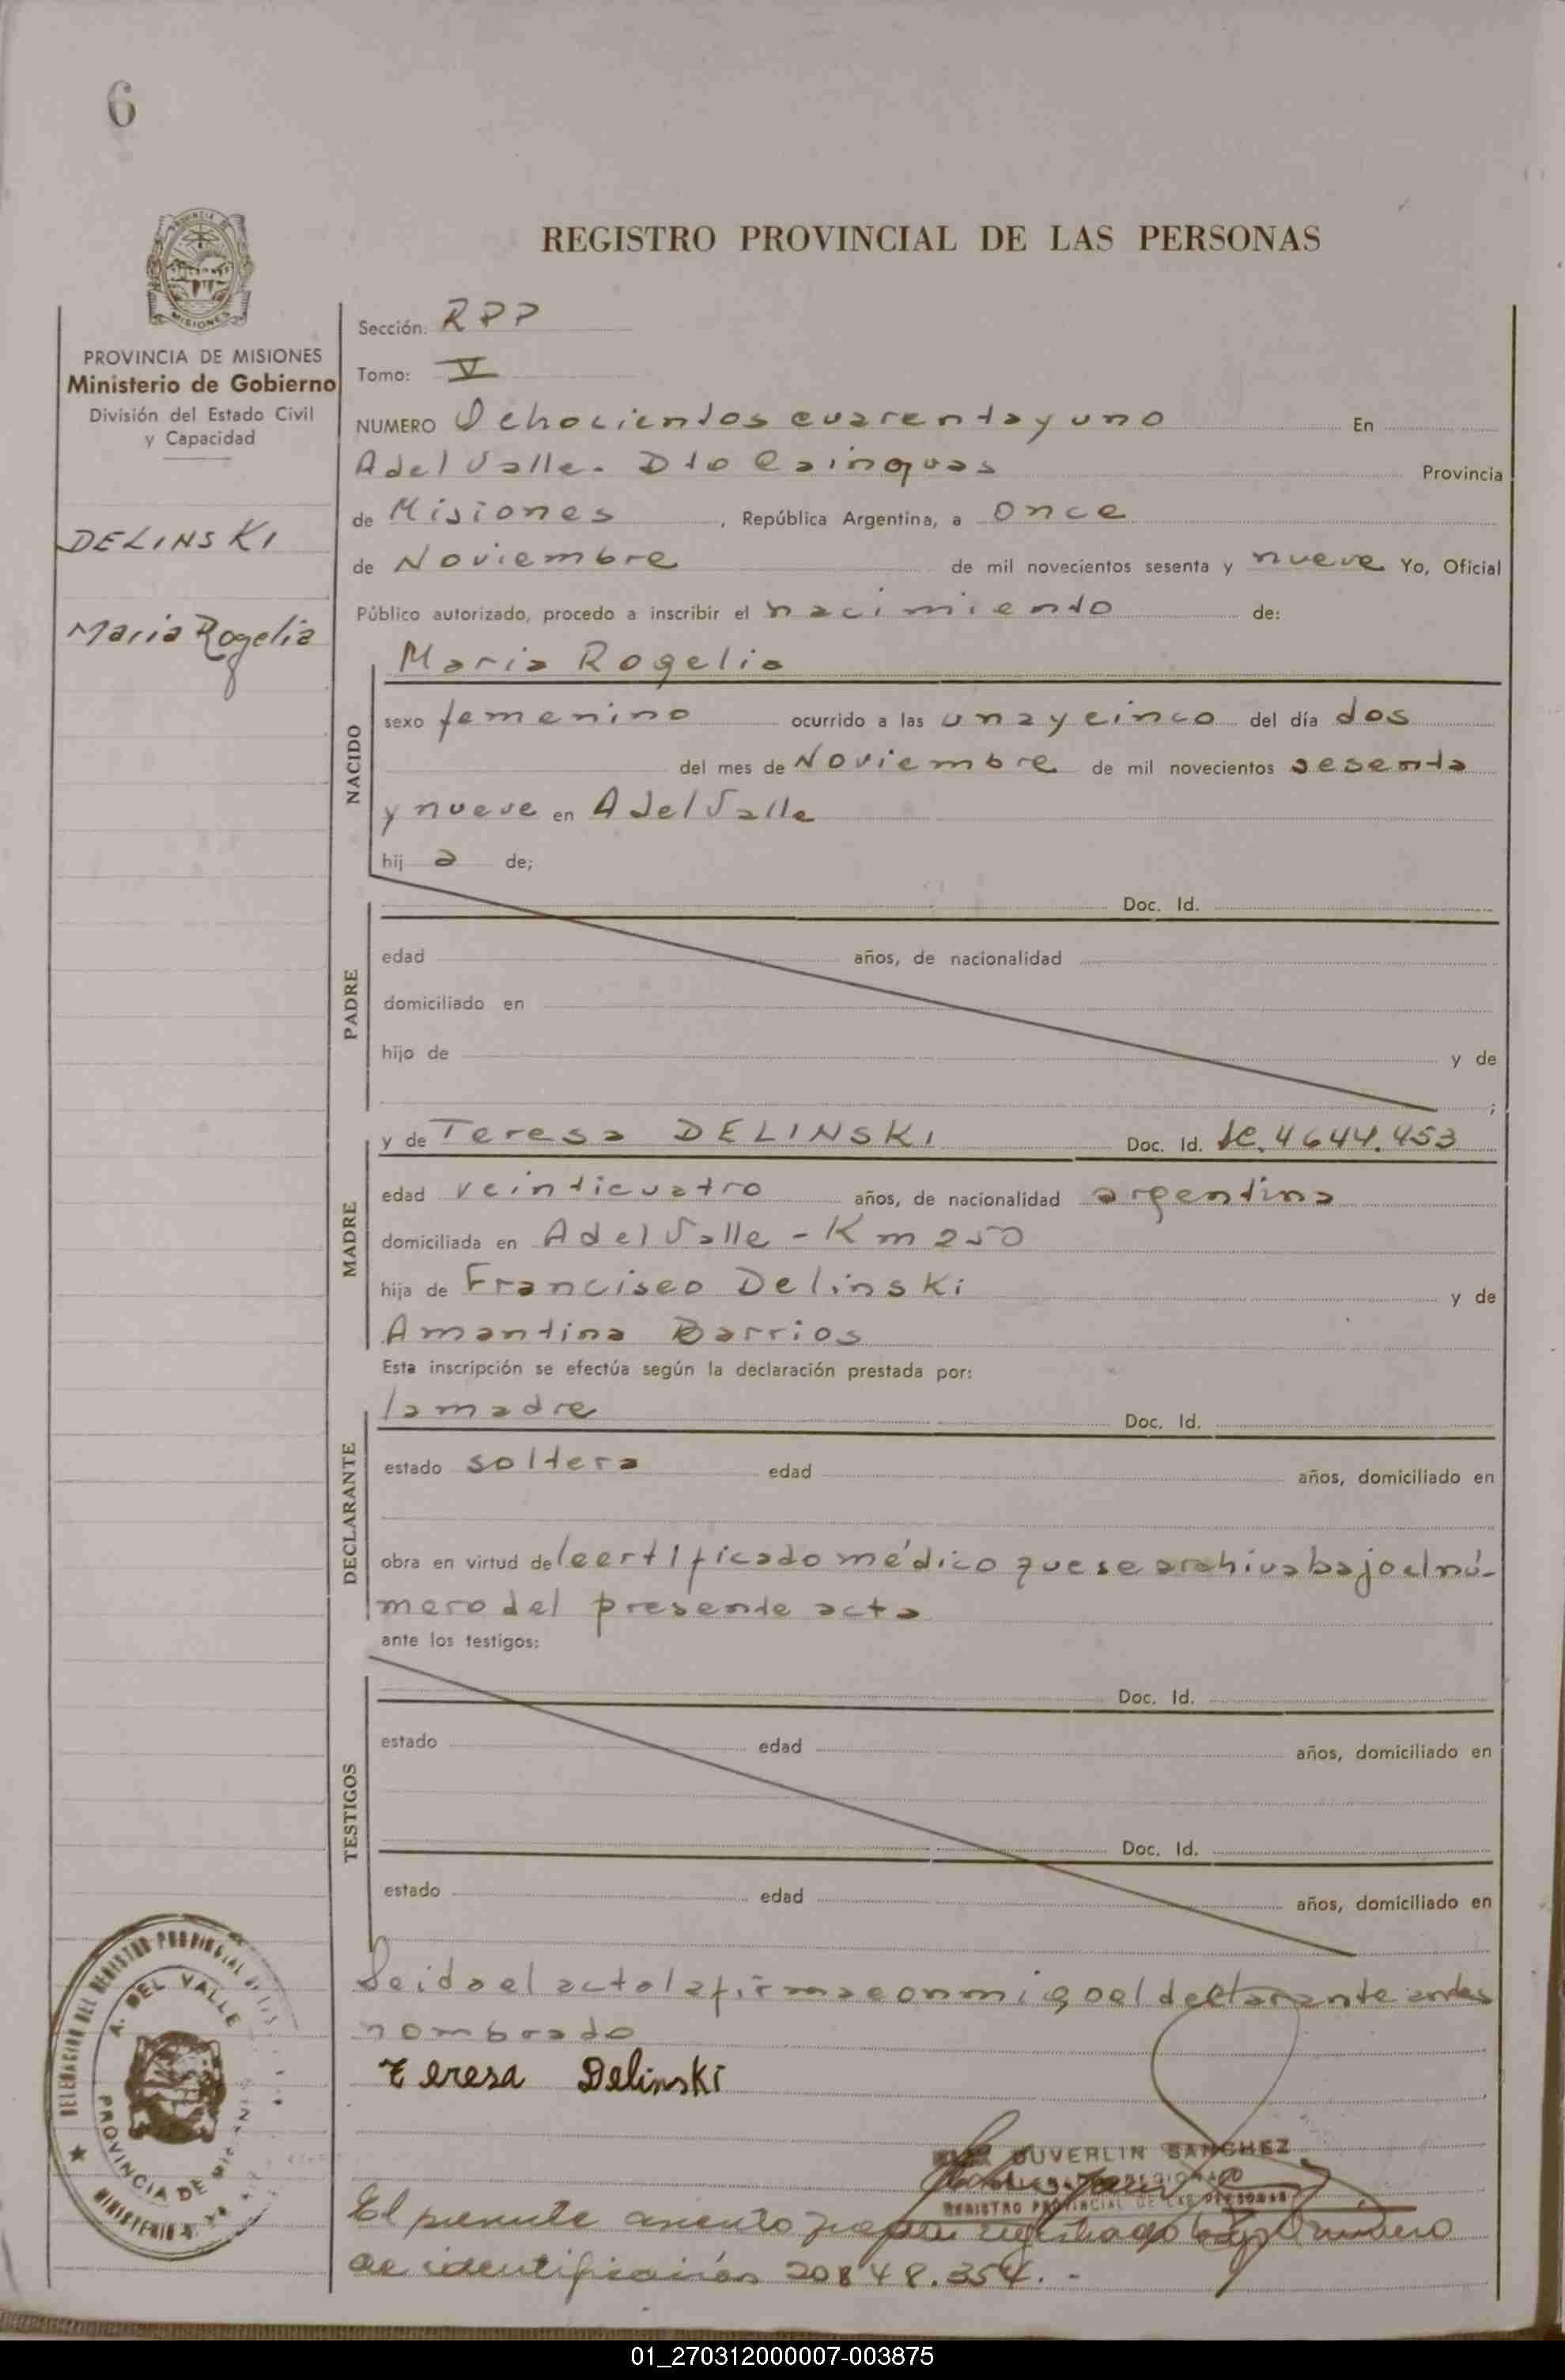 6
REGISTRO PROVINCIAL DE LAS PERSONAS
PROVINCIA DE MISIONES
Ministerio de Gobierno
División del Estado Civil
y Capacidad
DELINSKI
Maria Rogelia
Sección: RPP
Tomo: V
NUMERO Ochocientos cuarenta y uno En
A del Valle. Dto Cainguas Provincia
de Misiones, República Argentina, a once
de Noviembre de mil novecientos sesenta y nueve Yo, Oficial
Público autorizado, procedo a inscribir el nacimiento de:
NACIDO
Maria Rogelia
sexo femenino ocurrido a las una y cinco del día dos
del mes de Noviembre de mil novecientos sesenta
y nueve en A del Valle
hij a de;
PADRE
Doc. Id.
edad años, de nacionalidad
domiciliado en
hijo de y de
;
MADRE
y de Teresa DELINSKI Doc. Id. LC. 4644.453
edad veinticuatro años, de nacionalidad argentina
domiciliada en A del Valle - Km 250
hija de Francisco Delinski y de
Amantina Barrios
Esta inscripción se efectúa según la declaración prestada por:
DECLARANTE
la madre Doc. Id.
estado soltera edad años, domiciliado en
obra en virtud del certificado médico que se archiva bajo el nú-
mero del presente acta
ante los testigos:
TESTIGOS
Doc. Id.
estado edad años, domiciliado en
Doc. Id.
estado edad años, domiciliado en
Leida el acta la firma conmigo el declarante antes
nombrado
Teresa Delinski
DUVERLIN SANCHEZ
REGISTRO PROVINCIAL DE LAS PERSONAS
El presente asiento registrado bajo Número
de identificación 20848.354.-
DELEGACION DEL REGISTRO PROVINCIAL DE LAS
A. DEL VALLE
PROVINCIA DE MISIONES
MINISTERIO
01_270312000007-003875